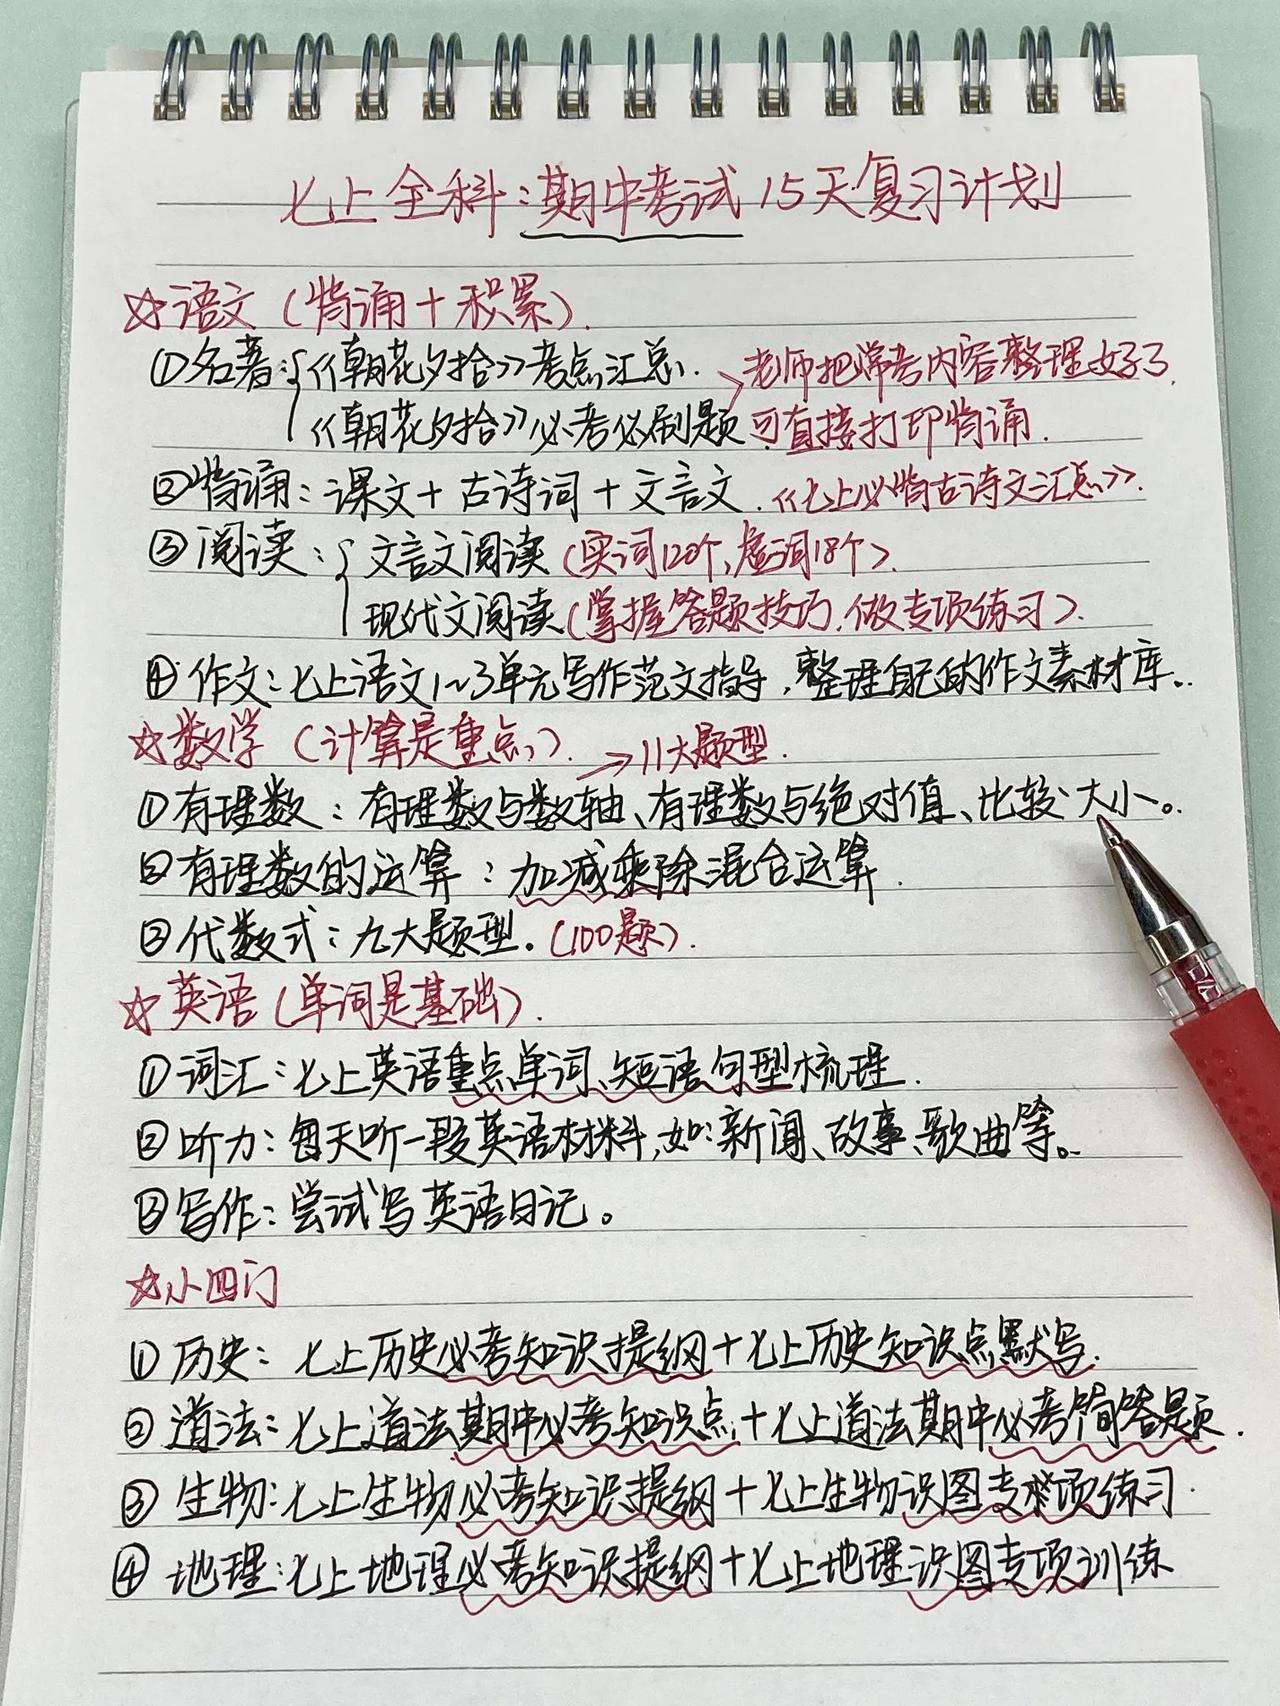 七上全科:期中考试15天复习计划
☆语文(背诵+积累).
①名著:{《朝花夕拾》考点汇总.→老师把常考内容整理好了,
《朝花夕拾》必考必刷题 可直接打印背诵.
②背诵:课文+古诗词+文言文.《七上必背古诗文汇总》.
③阅读:{文言文阅读(实词120个,虚词18个).
现代文阅读(掌握答题技巧,做专项练习).
④作文:七上语文1~3单元写作范文指导,整理自己的作文素材库。
☆数学(计算是重点). →11大题型.
①有理数:有理数与数轴、有理数与绝对值、比较大小。
②有理数的运算:加减乘除混合运算.
③代数式:九大题型.(100题).
☆英语(单词是基础).
①词汇:七上英语重点单词、短语句型梳理.
②听力:每天听一段英语材料,如:新闻、故事、歌曲等。
③写作:尝试写英语日记。
☆小四门
①历史:七上历史必考知识提纲+七上历史知识点默写.
②道法:七上道法期中必考知识点+七上道法期中必考简答题.
③生物:七上生物必考知识提纲+七上生物识图专项练习.
④地理:七上地理必考知识提纲+七上地理识图专项训练